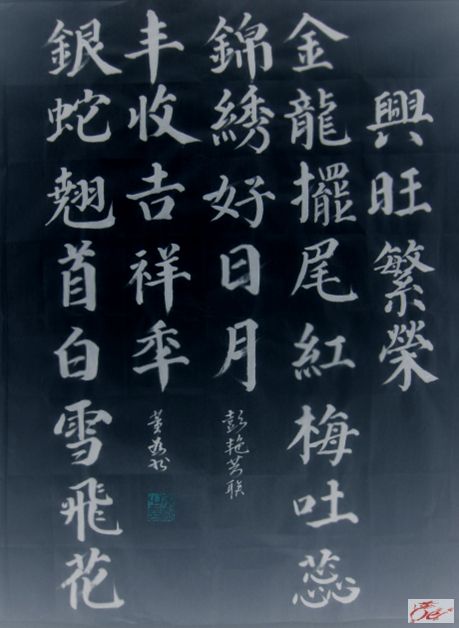 興旺繁榮
金龍擺尾紅梅吐蕊
錦綉好日月
彭艳联
丰收吉祥年
黄
銀蛇翘首白雪飛花